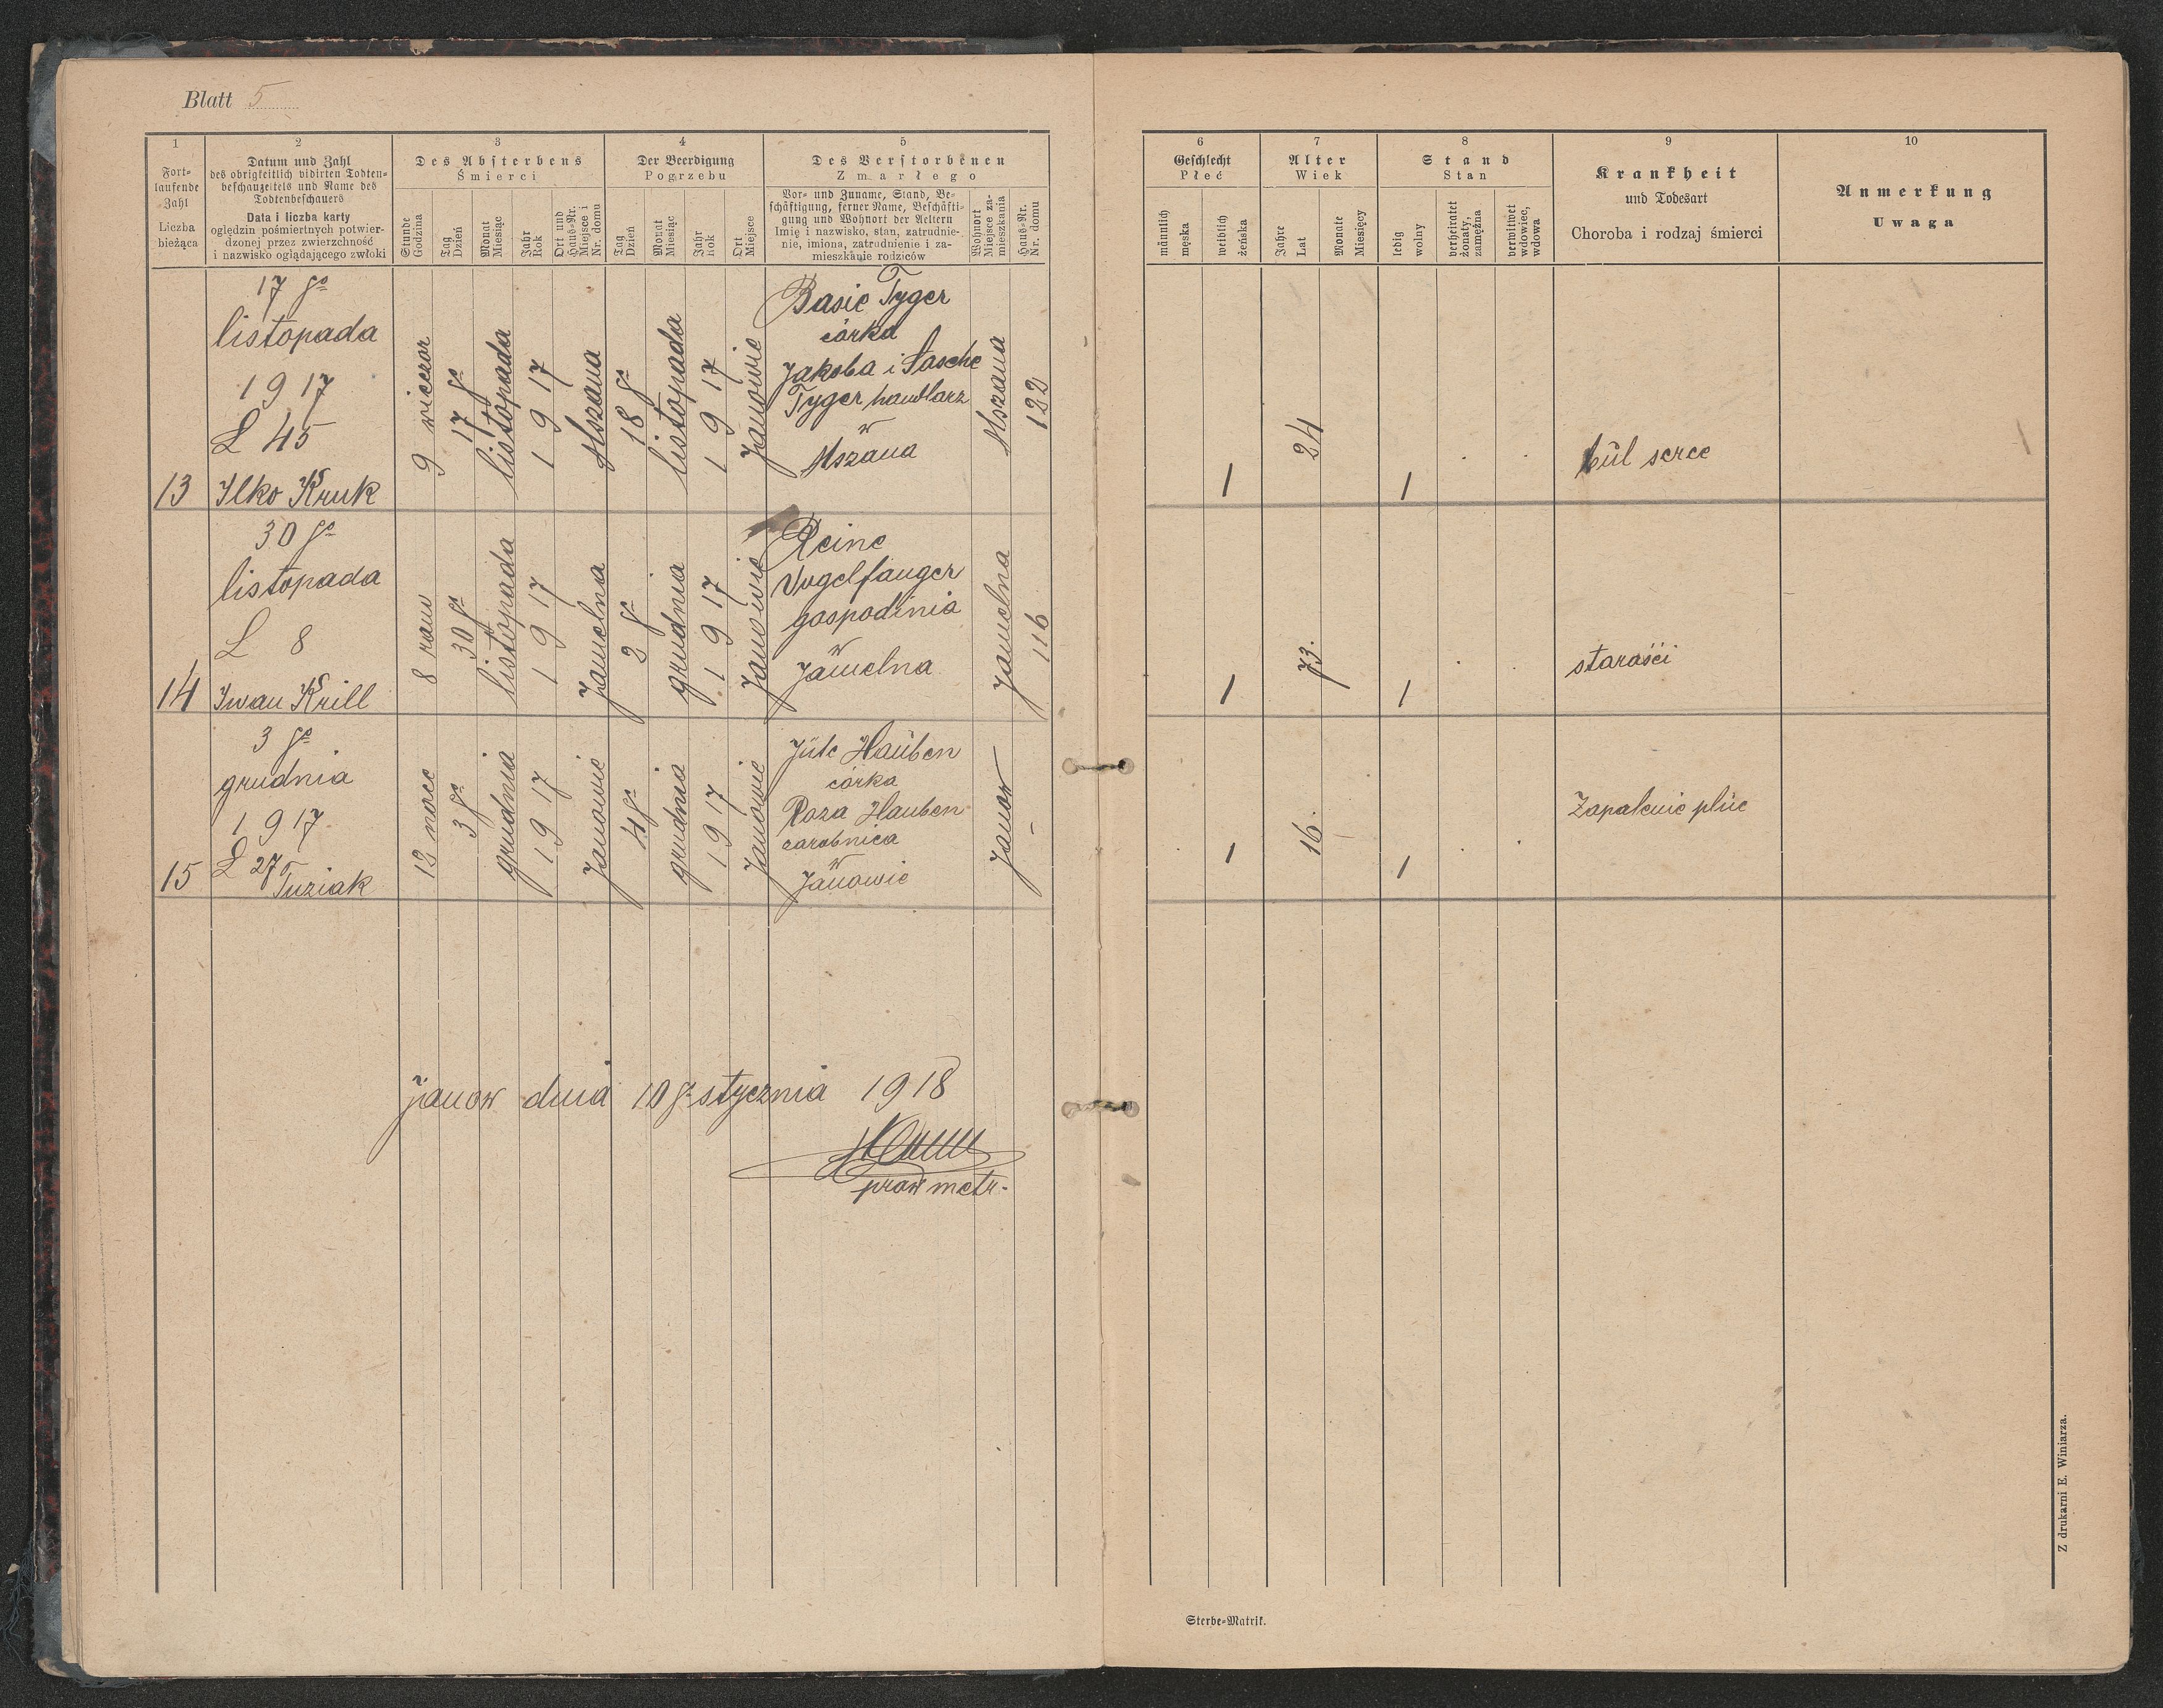 Blatt 5
1
Fort-
laufende
Zahl
Liczba
bieżąca
2
Datum und Zahl
des obrigkeitlich vidirten Todten-
beschauzettels und Name des
Todtenbeschauers
Data i liczba karty
oględzin pośmiertnych potwier-
dzonej przez zwierzchność
i nazwisko oglądającego zwłoki
3
Des Absterbens
Śmierci
Stunde
Godzina
Tag
Dzień
Monat
Miesiąc
Jahr
Rok
Ort und
Haus-Nr.
Miejsce i
Nr. domu
4
Der Beerdigung
Pogrzebu
Tag
Dzień
Monat
Miesiąc
Jahr
Rok
Ort
Miejsce
5
Des Verstorbenen
Zmarłego
Vor- und Zuname, Stand, Be-
schäftigung, ferner Name, Beschäfti-
gung und Wohnort der Aeltern
Imię i nazwisko, stan, zatrudnie-
nie, imiona, zatrudnienie i za-
mieszkanie rodziców
Wohnort
Miejsce za-
mieszkania
Haus-Nr.
Nr. domu
6
Geschlecht
Płeć
männlich
męska
weiblich
żeńska
7
Alter
Wiek
Jahre
Lat
Monate
Miesięcy
8
Stand
Stan
ledig
wolny
verheiratet
żonaty,
zamężna
verwitwet
wdowiec,
wdowa
9
Krankheit
und Todesart
Choroba i rodzaj śmierci
10
Anmerkung
Uwaga
13
17 go
listopada
1917
L 45
Ilko Kruk
9 wieczor
17 go
listopada
1917
Mszana
18 go
listopada
1917
Janowie
Basie Tyger
córka
Jakoba i Sasche
Tyger handlarz
w
Mszana
Mszana
122
1
24
1
bül serce
14
30 go
listopada
L 8
Iwan Krill
8 rano
30 go
listopada
1917
Jamelna
2 go
grudnia
1917
Janowie
Reine
Vogelfanger
gospodinia
w
Jamelna
Jamelna
116
1
73
1
starości
15
3 go
grudnia
1917
L 27
Tuziak
12 noce
3 go
grudnia
1917
Janowie
4 go
grudnia
1917
Janowie
Jüte Hauben
córka
Roza Hauben
zarobnica
w
Janowie
Janow
1
16
1
Zapalenie plüc
Janow dnia 10 go stycznia 1918
prow metr.
Sterbe-Matrik.
Z drukarni E. Winiarza.